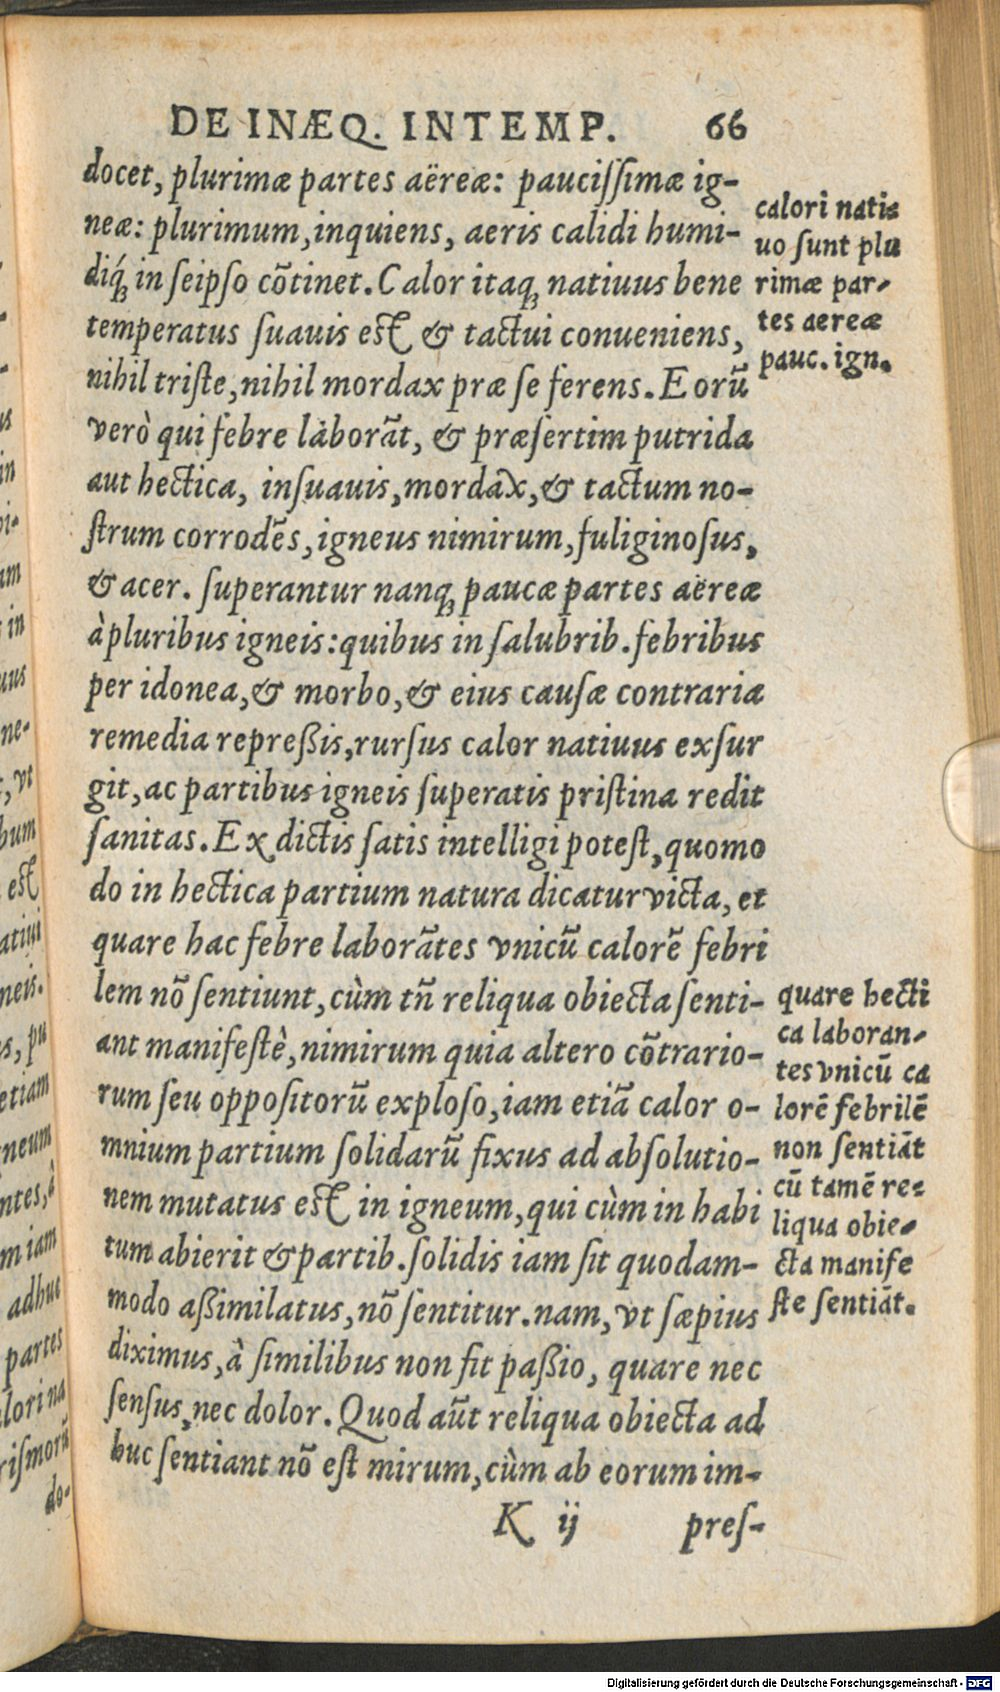 DE INÆQ. INTEMP. 66
docet, plurimæ partes aëreæ: paucissimæ ig-
neæ: plurimum, inquiens, aeris calidi humi-
diq́; in seipso cõtinet. Calor itaq; natiuus bene
temperatus suauis est & tactui conueniens,
nihil triste, nihil mordax præ se ferens. Eorũ
verò qui febre laborãt, & præsertim putrida
aut hectica, insuauis, mordax, & tactum no-
strum corrodẽs, igneus nimirum, fuliginosus,
& acer. superantur nanq; paucæ partes aëreæ
à pluribus igneis: quibus in salubrib. febribus
per idonea, & morbo, & eius causæ contraria
remedia repreßis, rursus calor natiuus exsur
git, ac partibus igneis superatis pristina redit
sanitas. Ex dictis satis intelligi potest, quomo
do in hectica partium natura dicatur victa, et
quare hac febre laborãtes vnicũ calorẽ febri
lem nõ sentiunt, cùm tñ reliqua obiecta senti-
ant manifestè, nimirum quia altero cõtrario-
rum seu oppositorũ exploso, iam etiã calor o-
mnium partium solidarũ fixus ad absolutio-
nem mutatus est in igneum, qui cùm in habi
tum abierit & partib. solidis iam sit quodam-
modo aßimilatus, nõ sentitur. nam, vt sæpius
diximus, à similibus non fit paßio, quare nec
sensus, nec dolor. Quod aũt reliqua obiecta ad
huc sentiant nõ est mirum, cùm ab eorum im-
K ij pres-
calori nati-
uo sunt plu
rimæ par-
tes aereæ
pauc. ign.
quare hecti
ca laboran-
tes vnicũ ca
lorẽ febrilẽ
non sentiãt
cũ tamẽ re-
liqua obie-
cta manife
ste sentiãt.
Digitalisierung gefördert durch die Deutsche Forschungsgemeinschaft - DFG